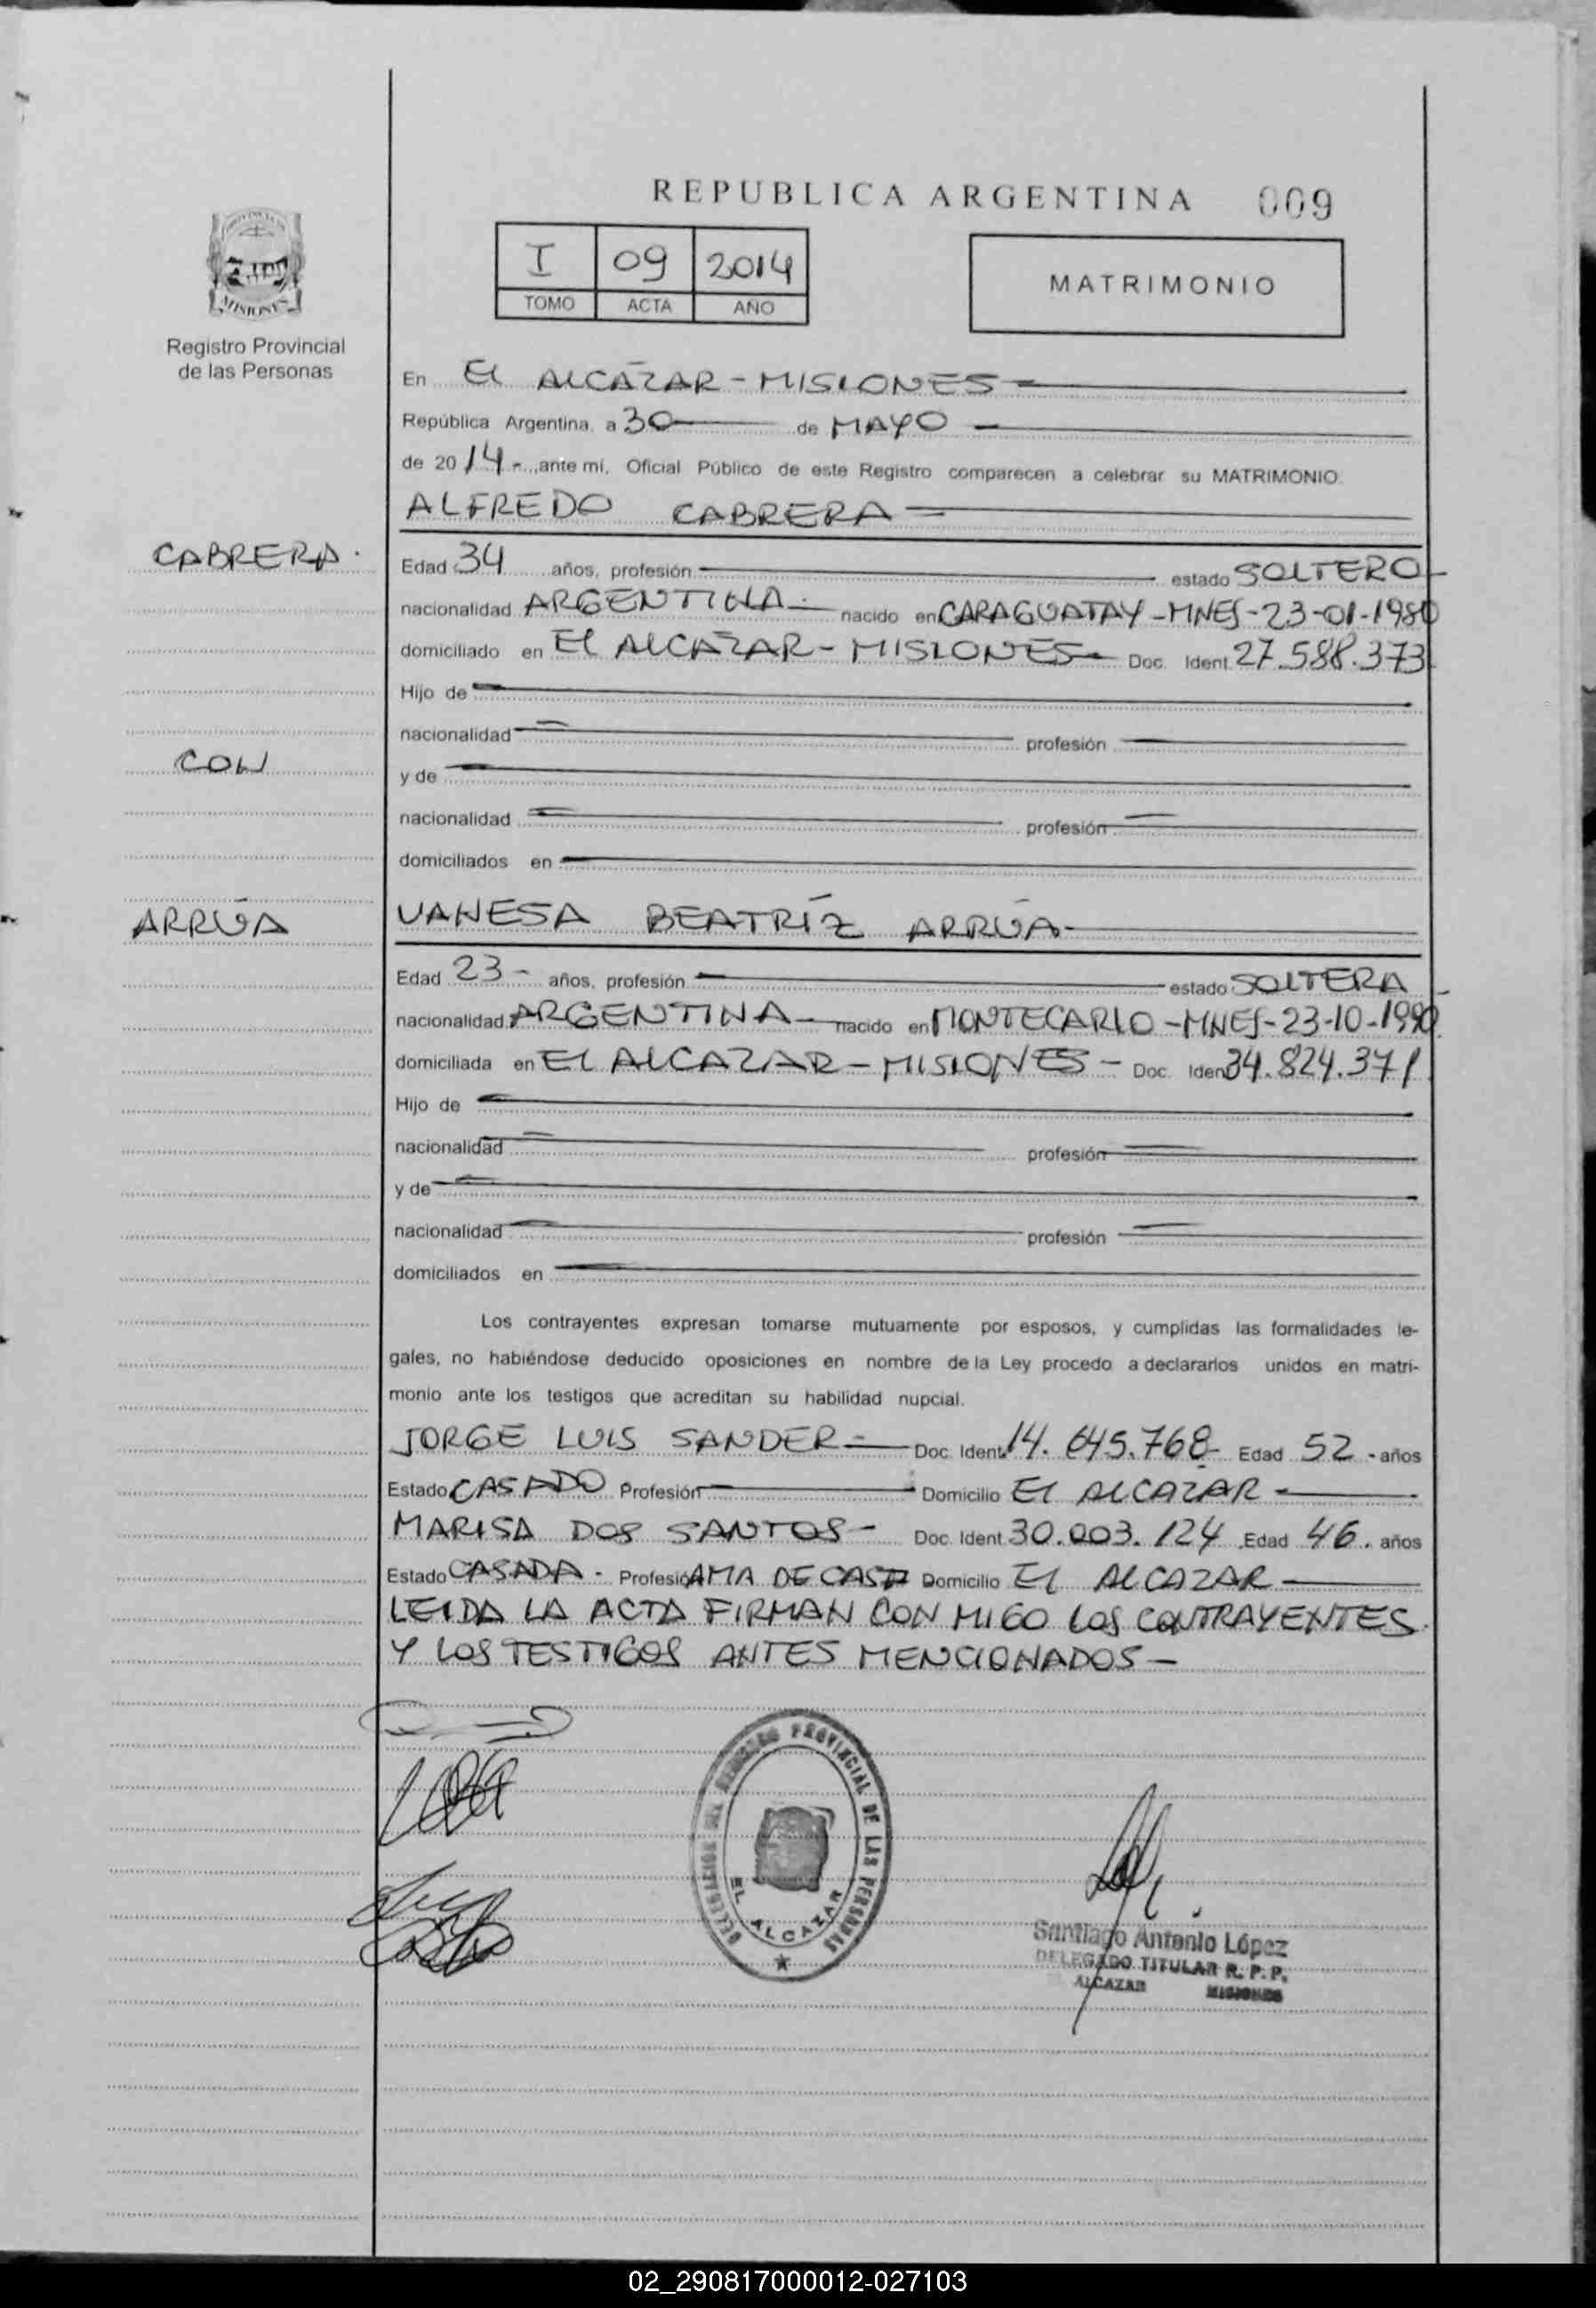 REPUBLICA ARGENTINA 009
I 09 2014
TOMO ACTA AÑO
MATRIMONIO
MISIONES
Registro Provincial
de las Personas
En El ALCÁZAR - MISIONES
República Argentina, a 30 de MAYO
de 20 14 - ante mí, Oficial Público de este Registro comparecen a celebrar su MATRIMONIO:
ALFREDO CABRERA
CABRERA.
Edad 34 años, profesión estado SOLTERO
nacionalidad ARGENTINA nacido en CARAGUATAY - MNES - 23-01-1980
domiciliado en El ALCÁZAR - MISIONES Doc. Ident. 27.588.373
Hijo de
nacionalidad profesión
CON
y de
nacionalidad profesión
domiciliados en
ARRÚA
VANESA BEATRÍZ ARRÚA
Edad 23 - años, profesión estado SOLTERA
nacionalidad ARGENTINA nacido en MONTECARLO - MNES - 23-10-1990
domiciliada en El ALCAZAR - MISIONES - Doc. Iden 34.824.371
Hijo de
nacionalidad profesión
y de
nacionalidad profesión
domiciliados en
Los contrayentes expresan tomarse mutuamente por esposos, y cumplidas las formalidades le-
gales, no habiéndose deducido oposiciones en nombre de la Ley procedo a declararlos unidos en matri-
monio ante los testigos que acreditan su habilidad nupcial.
JORGE LUIS SANDER Doc. Ident. 14.645.768 Edad 52 - años
Estado CASADO Profesión Domicilio El ALCAZAR
MARISA DOS SANTOS - Doc. Ident. 30.003.124 Edad 46. años
Estado CASADA. Profesió AMA DE CASA Domicilio El ALCAZAR
LEIDA LA ACTA FIRMAN CON MIGO LOS CONTRAYENTES
Y LOS TESTIGOS ANTES MENCIONADOS -
DELEGACION DEL REGISTRO PROVINCIAL DE LAS PERSONAS
EL ALCAZAR
Santiago Antonio López
DELEGADO TITULAR R. P. P.
ALCAZAR MISIONES
02_290817000012-027103